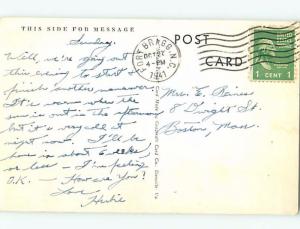 THIS SIDE FOR MESSAGE
POST
CARD
FORT BRAGG, N.C.
OCT 27
4-PM
1941
1 CENT 1
Sunday.
Well, we're going out
this evening to start or
finish another maneuver.
It's warm when the
sun is out in the afternoon
but it's very cold at
night now. I'll be
home in about 6 weeks,
or less – I'm feeling
O.K. How are you?
Love
Herbie
Mrs. E. Raines
8 Dwight St.
Boston, Mass.